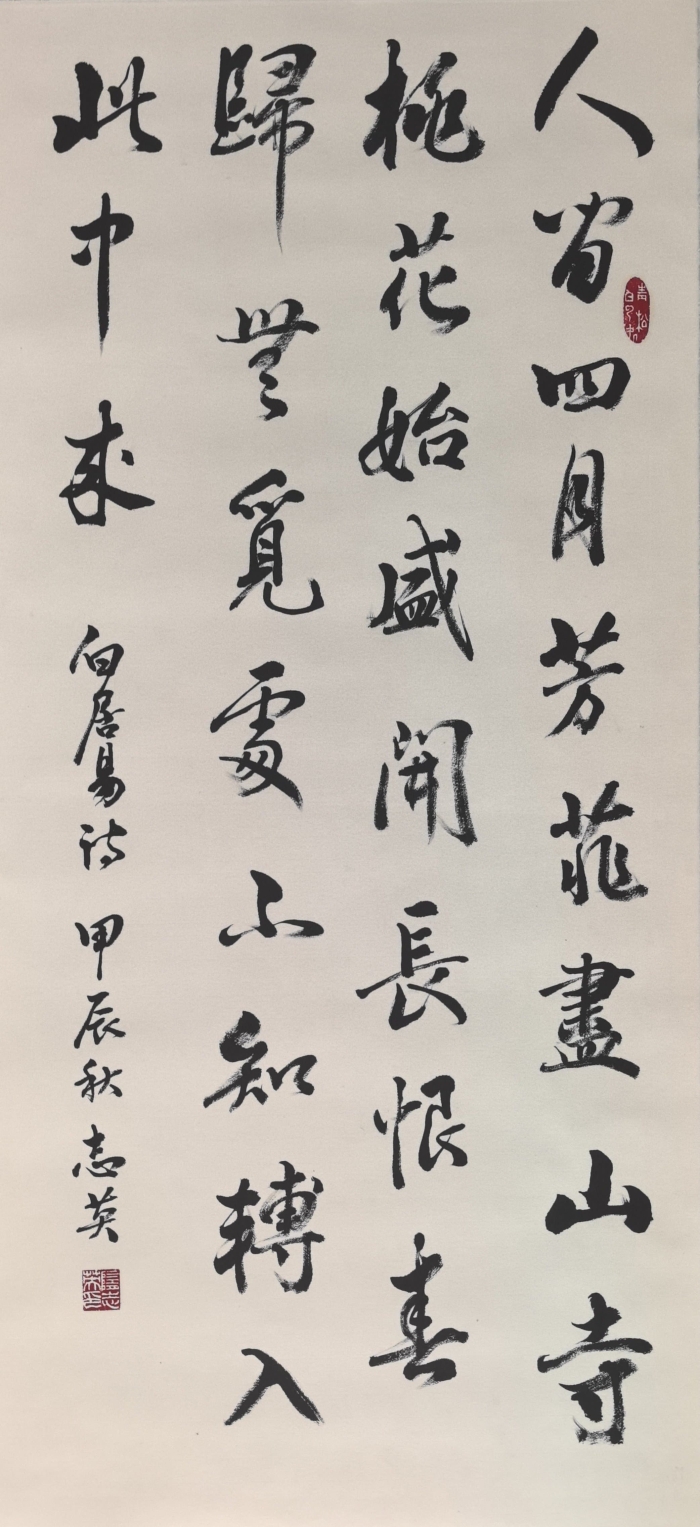 人間四月芳菲盡山寺
桃花始盛開長恨春
歸無覓處不知轉入
此中來
白居易诗 甲辰秋 志英